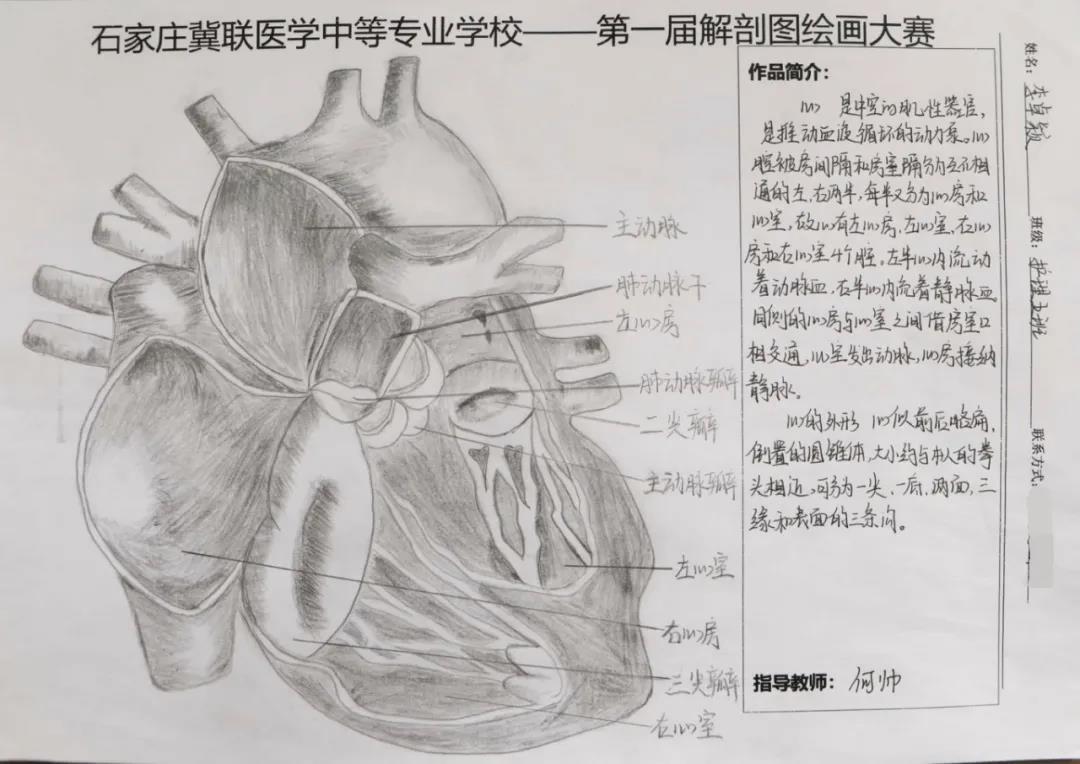 石家庄冀联医学中等专业学校——第一届解剖图绘画大赛
主动脉
肺动脉干
左心房
肺动脉瓣
二尖瓣
主动脉瓣
左心室
右心房
三尖瓣
右心室
作品简介：
心 是中空的肌性器官，
是推动血液循环的动力泵。心
腔被房间隔和房室隔分为互不相
通的左、右两半，每半又分为心房和
心室，故心有左心房、左心室、右心
房和右心室4个腔。左半心内流动
着动脉血，右半心内流着静脉血。
同侧的心房与心室之间借房室口
相交通，心室发出动脉，心房接纳
静脉。
心的外形 心似前后略扁，
倒置的圆锥体，大小约与本人的拳
头相近，可分为一尖、一底、两面、三
缘和表面的三条沟。
指导教师：何帅
姓名：李卓颖
班级：护理五班
联系方式：